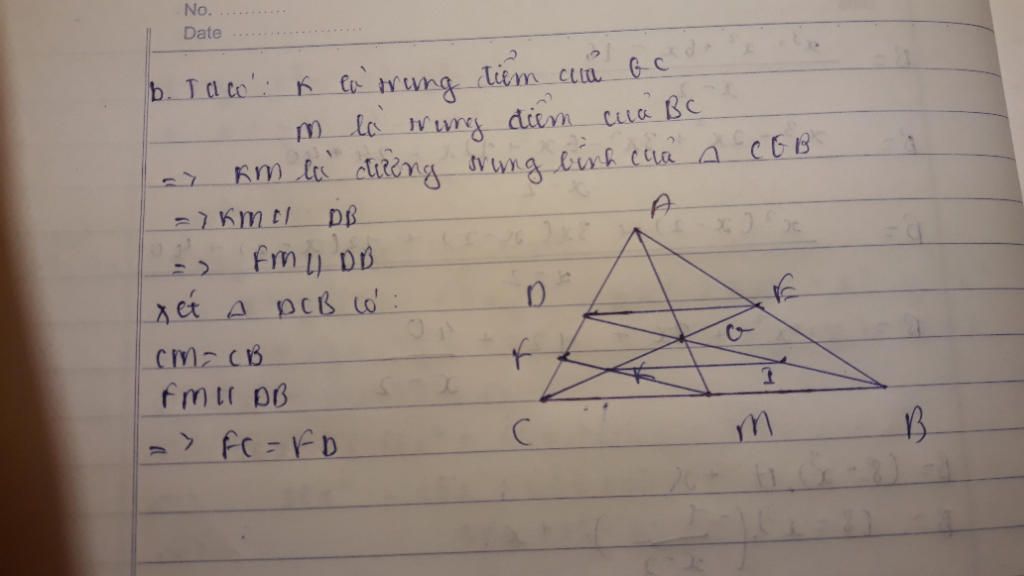 No. ...........
Date ......................
b. Ta có: K là trung điểm của GC
M là trung điểm của BC
=> KM là đường trung bình của △ CGB
=> KM // DB
=> FM // DB
xét △ DCB có:
CM = CB
FM // DB
=> FC = FD
A
D
E
F
G
K
I
C
M
B